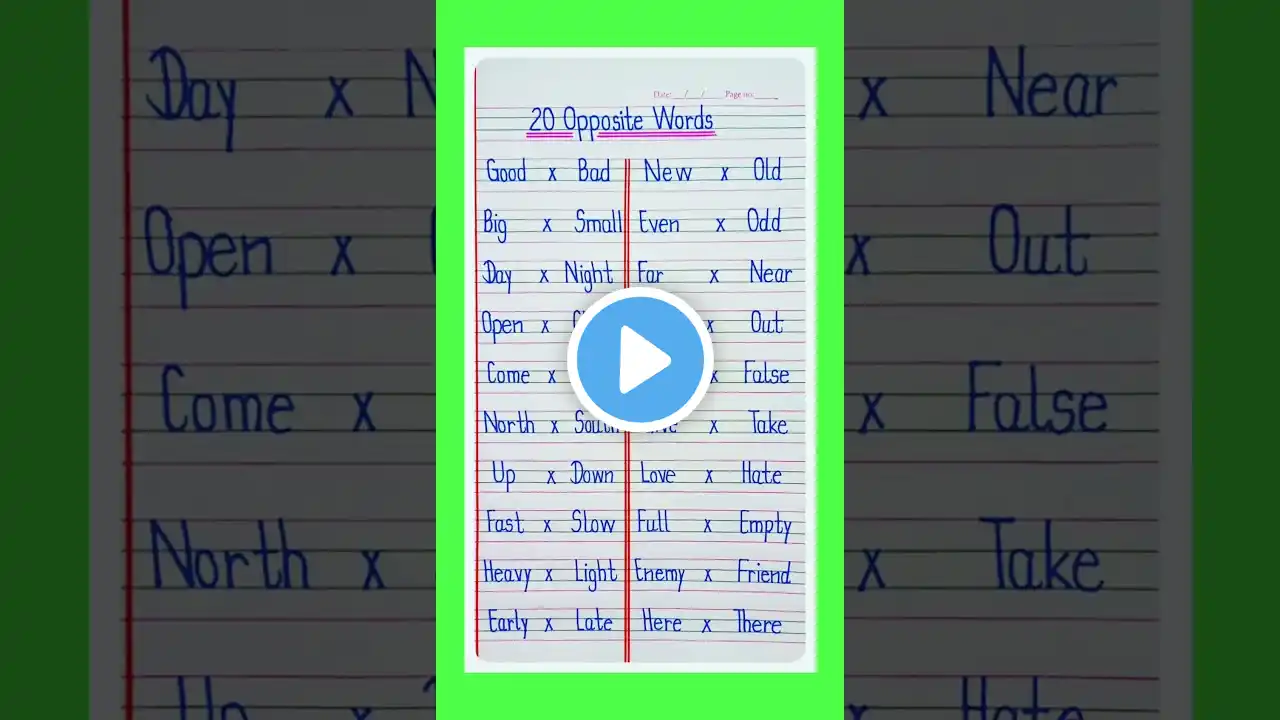 Date: / / Page no:
20 Opposite Words
Good x Bad New x Old
Big x Small Even x Odd
Day x Night Far x Near
Open x x Out
Come x x False
North x South x Take
Up x Down Love x Hate
Fast x Slow Full x Empty
Heavy x Light Enemy x Friend
Early x Late Here x There
Day x
Open x
Come x
North x
Up x
x Near
x Out
x False
x Take
x Hate